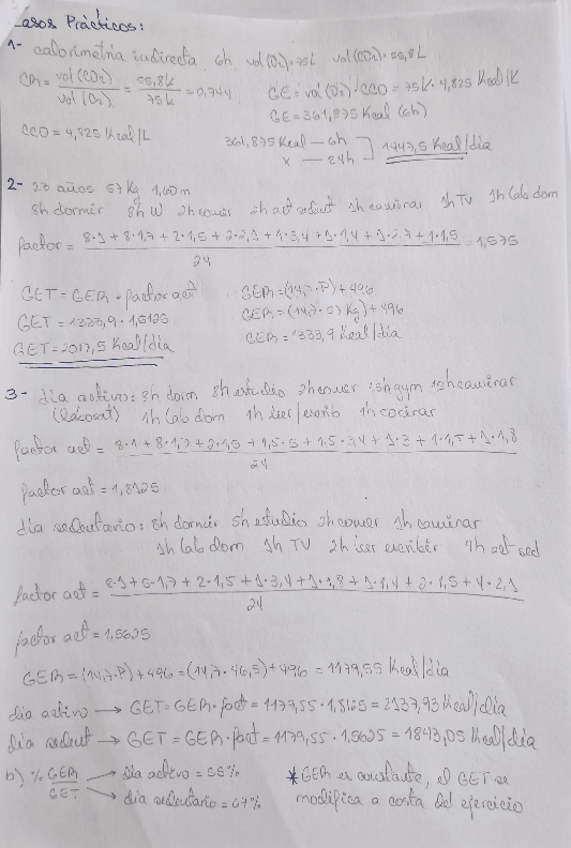 Casos Prácticos:
1- calorimetria indirecta 6h vol(O₂)=75L vol(CO₂)=55,8L
CR = vol(CO₂)/vol(O₂) = 55,8L/75L = 0,744
GE = vol(O₂)·CCO = 75L·4,825 Kcal/L
GE = 361,875 Kcal (6h)
CCO = 4,825 Kcal/L
361,875 Kcal — 6h
x — 24h
1447,5 Kcal/día
2- 23 años 57 Kg 1,60m
8h dormir 8h W 2h comer 2h act sedent 1h caminar 1h TV 1h lab dom
factor = 8·1 + 8·1,7 + 2·1,5 + 2·2,1 + 1·3,4 + 1·1,4 + 1·2,7 + 1·1,5 / 24 = 1,575
GET = GER · factor act
GER = (14,7·P) + 496
GET = 1333,9 · 1,5125
GER = (14,7·57 Kg) + 496
GET = 2017,5 Kcal/día
GER = 1333,9 Kcal/día
3- día activo: 8h dorm 8h estudio 2h comer 1,5h gym 1,5h caminar
1h lab dom 1h leer/escrib 1h cocinar
factor act = 8·1 + 8·1,7 + 2·1,5 + 1,5·5 + 1,5·3,4 + 1·3 + 1·1,5 + 1·1,8 / 24
factor act = 1,8125
día sedentario: 8h dormir 5h estudio 2h comer 1h caminar
1h lab dom 1h TV 2h leer escribir 4h act sed
factor act = 8·1 + 5·1,7 + 2·1,5 + 1·3,4 + 1·1,8 + 1·1,4 + 2·1,5 + 4·2,1 / 24
factor act = 1,5625
GER = (14,7·P) + 496 = (14,7·46,5) + 496 = 1179,55 Kcal/día
día activo → GET = GER·fact = 1179,55·1,8125 = 2137,93 Kcal/día
día sedent → GET = GER·fact = 1179,55·1,5625 = 1843,05 Kcal/día
b) % GER/GET → Día activo = 55%
→ día sedentario = 67%
*GER es constante, el GET se
modifica a costa del ejercicio